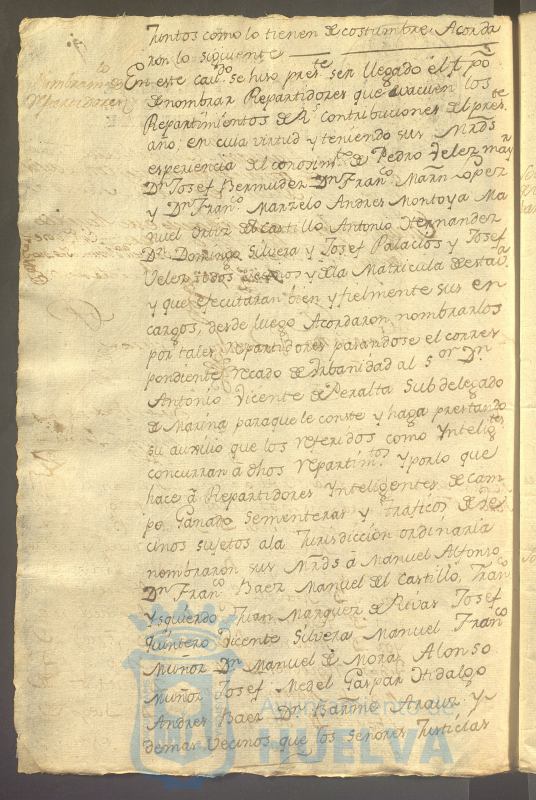 Juntos como lo tienen de costumbre Acorda
ron lo siguiente
Nombram.to de
Repartidores
En este cav.do se hiso pres.te ser llegado el tpo
de nombrar Repartidores que evacuen los
Repartimientos de R.s contribuciones del pres.te
año; en cuia virtud y teniendo sus Mrds
esperiencia del conosim.to de Pedro Velez mayor
Dn Josef Bermudez Dn Fran.co Marin Lopez
y Dn Fran.co Marzelo Andres Montoya Ma
nuel Ortiz del Castillo Antonio Hernandez
Dn Domingo Silvera y Josef Palacios y Josef
Velez todos vecinos y de la Matricula de esta v.a
y que executaran bien y fielmente sus en
cargos, desde luego Acordaron nombrarlos
por tales Repartidores pasandose el corres
pondiente recado de Urbanidad al S.or Dn
Antonio Vicente de Peralta Subdelegado
de Marina para que le conste y haga prestando
su auxilio que los referidos como Ynteligtes
concurran a dhos repartim.tos Y por lo que
hace a Repartidores Ynteligentes de Cam
po Ganado Sementeras y traficos de Ve
cinos sujetos a la Jurisdiccion ordinaria
nombraron sus Mrds a Manuel Alfonso
Dn Fran.co Baez Manuel del Castillo, Fran.co
Ysquierdo Juan Marquez de Rivas Josef
Quintero Vicente Silvera Manuel Fran.co
Muñoz Dn Manuel de Mora Alonso
Muñoz Josef Medel Gaspar Hidalgo
Andres Baez Dn Barme Arauz y
demas Vecinos que los señores Justicias
HUELVA